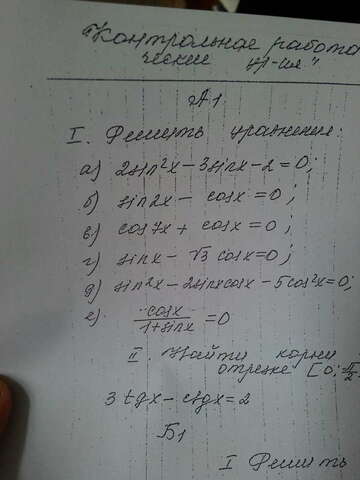 "Контрольное работа
ческие ур-ие"
А1
I. Решить уравнения:
а) 2sin²x - 3sinx - 2 = 0;
б) sin2x - cosx = 0;
в) cos7x + cosx = 0;
г) sinx - √3 cosx = 0;
д) sin²x - 2sinxcosx - 5cos²x = 0;
е) cosx / 1+sinx = 0
II. Найти корни
отрезке [0; π/2
3tgx - ctgx = 2
Б1
I Решить